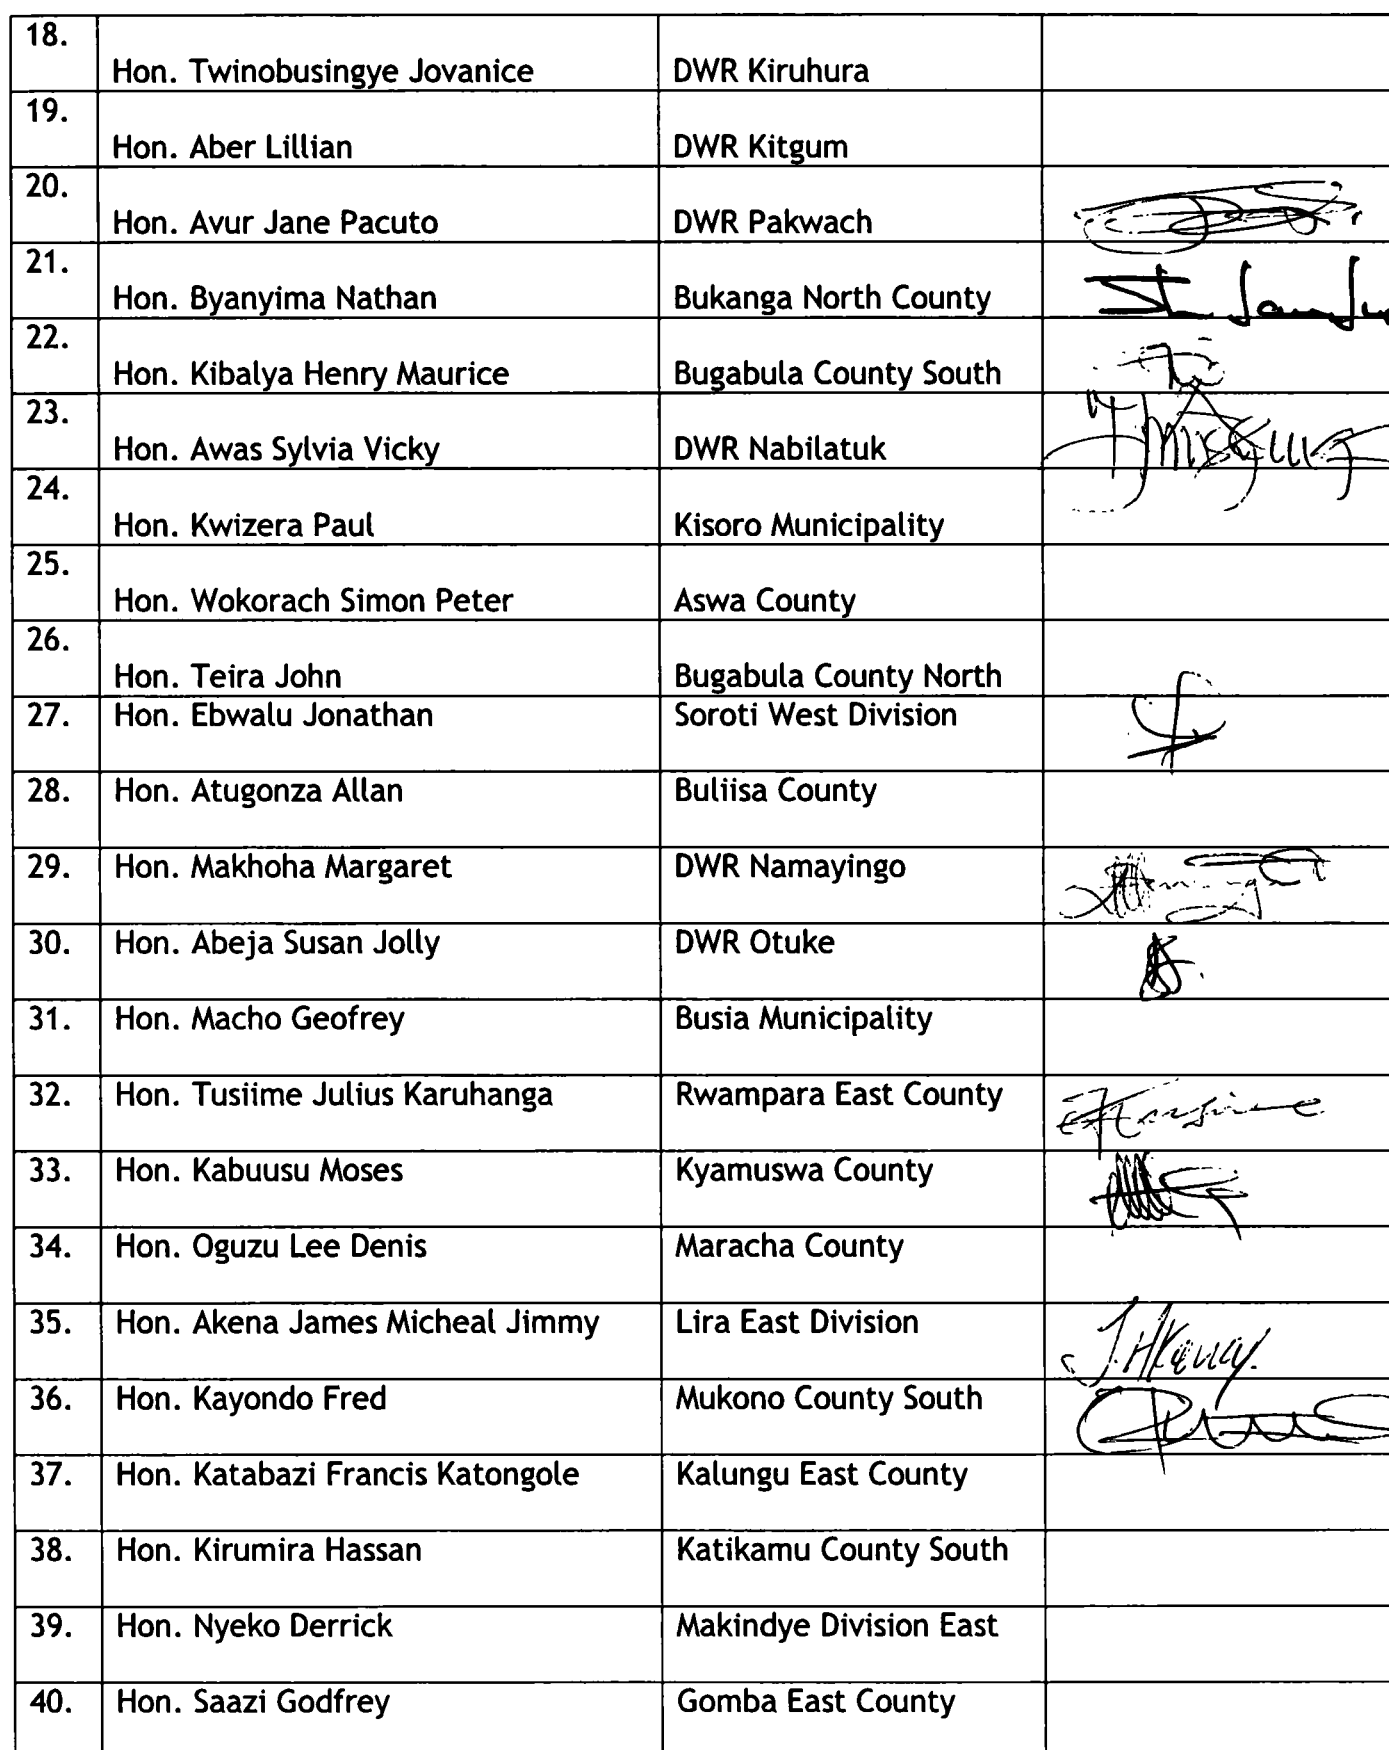 18.
Hon. Twinobusingye Jovanice DWR Kiruhura
19.
Hon. Aber Lillian DWR Kitgum
20.
Hon. Avur Jane Pacuto DWR Pakwach
21.
Hon. Byanyima Nathan Bukanga North County
22.
Hon. Kibalya Henry Maurice Bugabula County South
23.
Hon. Awas Sylvia Vicky DWR Nabilatuk
24.
Hon. Kwizera Paul Kisoro Municipality
25.
Hon. Wokorach Simon Peter Aswa County
26.
Hon. Teira John Bugabula County North
27. Hon. Ebwalu Jonathan Soroti West Division
28. Hon. Atugonza Allan Buliisa County
29. Hon. Makhoha Margaret DWR Namayingo
30. Hon. Abeja Susan Jolly DWR Otuke
31. Hon. Macho Geofrey Busia Municipality
32. Hon. Tusiime Julius Karuhanga Rwampara East County
33. Hon. Kabuusu Moses Kyamuswa County
34. Hon. Oguzu Lee Denis Maracha County
35. Hon. Akena James Micheal Jimmy Lira East Division
36. Hon. Kayondo Fred Mukono County South
37. Hon. Katabazi Francis Katongole Kalungu East County
38. Hon. Kirumira Hassan Katikamu County South
39. Hon. Nyeko Derrick Makindye Division East
40. Hon. Saazi Godfrey Gomba East County